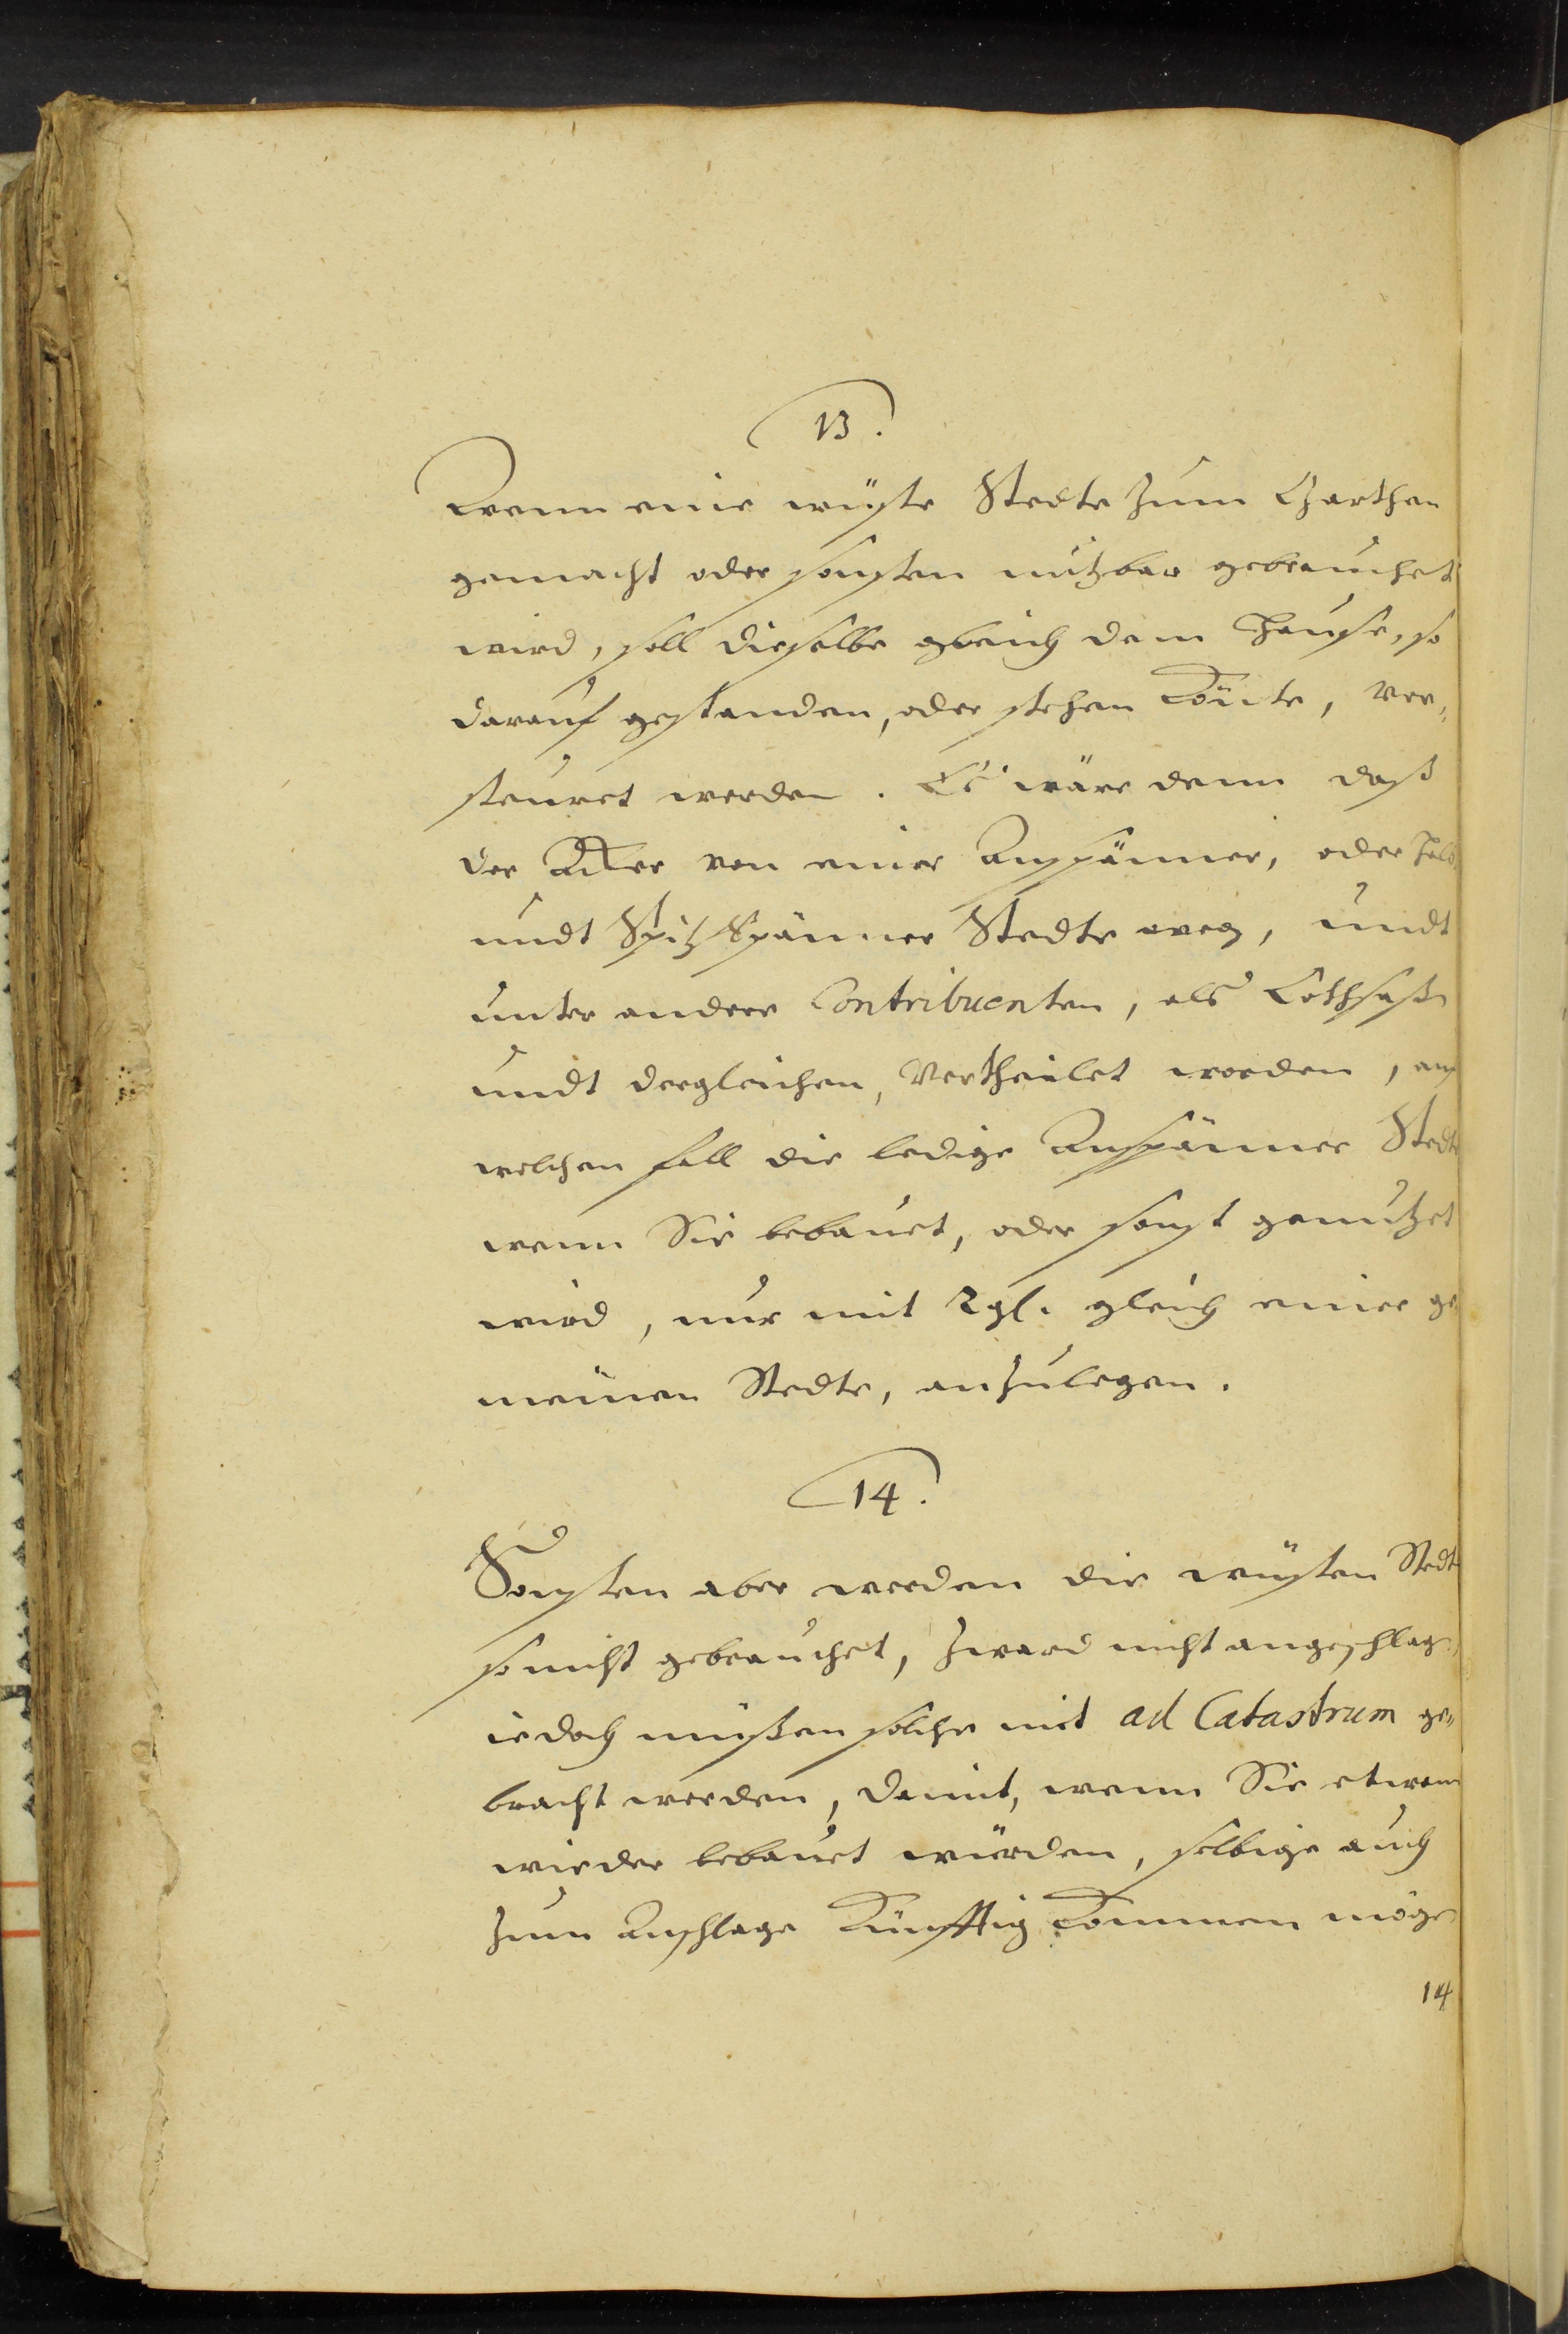 13.
Wenn eine wüste Stedte zum Garthen
gemacht oder sonsten nutzbar gebrauchet
wird, soll dieselbe gleich dem Hause, so
darauf gestanden, oder stehen könte, ver„
steuret werden. Es wäre denn daß
der Acker von einer Anspänner, oder halb
undt Spitz Spänner Stedte weg, undt
unter andere Contribuenten, als Cothsaß
undt dergleichen, vertheilet worden, auf
welchen fall die ledige Anspänner Stedte
wenn Sie bebauet, oder sonst genutzet
wird, nur mit 2 gl. gleich einer ge„
meinen Stedte, anzulegen.
14.
Sonsten aber werden die wüsten Stedte
so nicht gebrauchet, zward nicht angeschlag
iedoch müßen solche mit ad Catastrum ge„
bracht werden, damit, wenn Sie etwann
wieder bebauet würden, selbige auch
zum Anschlage künfftig kommen möge
14